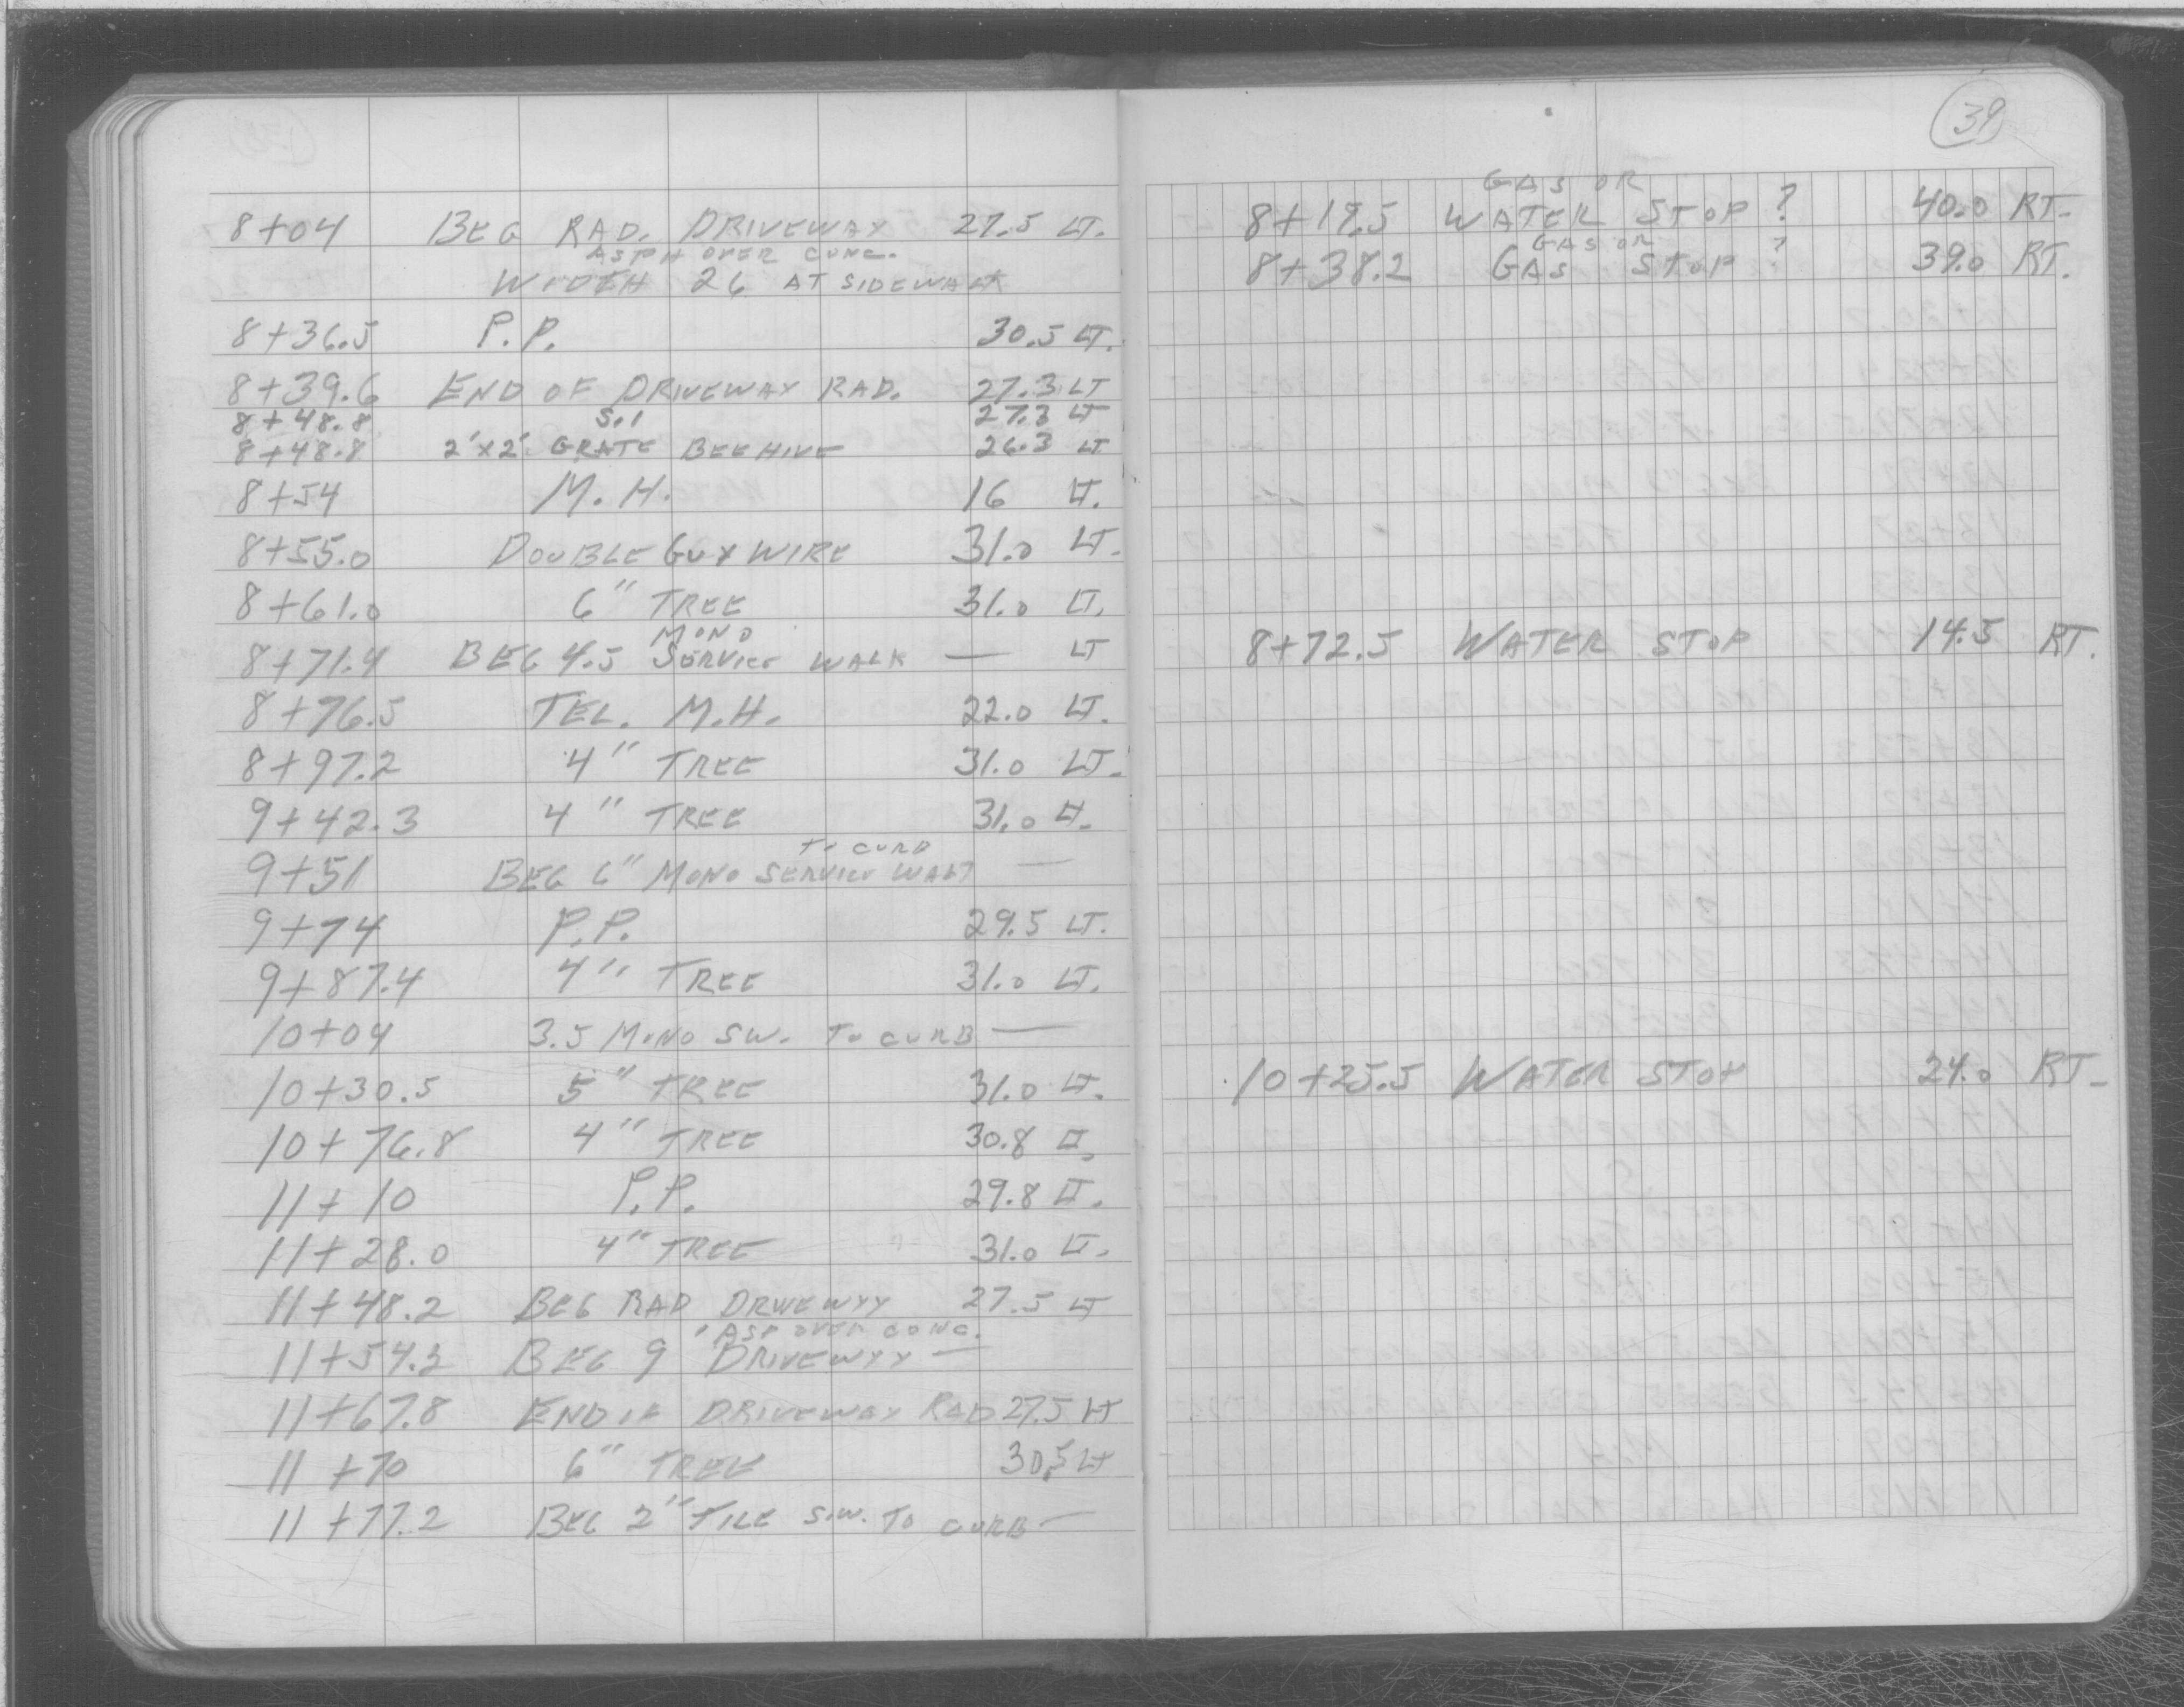 8+04 BEG RAD. DRIVEWAY 27.5 LT.
ASPH OVER CONC.
WIDTH 26 AT SIDEWALK
8+36.5 P.P. 30.5 LT.
8+39.6 END OF DRIVEWAY RAD. 27.3 LT
8+48.8 S.I 27.3 LT
8+48.8 2'X2' GRATE BEEHIVE 26.3 LT
8+54 M.H. 16 LT.
8+55.0 DOUBLE GUY WIRE 31.0 LT.
8+61.0 6" TREE 31.0 LT.
MONO
8+71.4 BEG 4.5 SERVICE WALK — LT
8+76.5 TEL. M.H. 22.0 LT.
8+97.2 4" TREE 31.0 LT.
9+42.3 4" TREE 31.0 LT.
TO CURB
9+51 BEG 6" MONO SERVICE WALK —
9+74 P.P. 29.5 LT.
9+87.4 4" TREE 31.0 LT.
10+04 3.5 MONO SW. TO CURB —
10+30.5 5" TREE 31.0 LT.
10+76.8 4" TREE 30.8 LT.
11+10 P.P. 29.8 LT.
11+28.0 4" TREE 31.0 LT.
11+48.2 BEG RAD DRWEWYY 27.5 LT
ASP OVER CONC.
11+54.2 BEG 9' DRIVEWYY —
11+67.8 END OF DRIVEWAY RAD 27.5 LT
11+70 6" TREE 30.5 LT
11+77.2 BEG 2" TILE S.W. TO CURB —
39
GAS OR
8+19.5 WATER STOP ? 40.0 RT.
GAS OR
8+38.2 GAS STOP ? 39.0 RT.
8+72.5 WATER STOP 14.5 RT.
10+25.5 WATER STOP 24.0 RT.